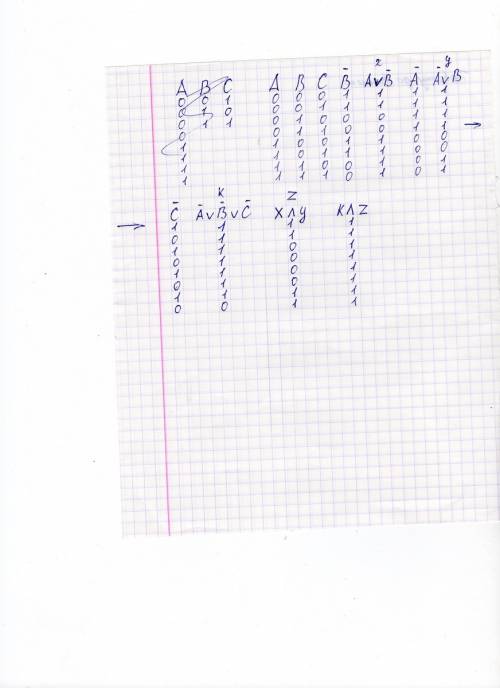 x y
A B C A B C B̄ AvB̄ Ā ĀvB
0 0 1 0 0 0 1 1 1 1
0 1 0 0 0 1 1 1 1 1
0 1 1 0 1 0 0 0 1 1
0 0 1 1 0 0 1 1 →
1 1 0 0 1 1 0 0
1 1 0 1 1 1 0 0
1 1 1 0 0 1 0 1
1 1 1 1 0 1 0 1
к z
→ C̄ ĀvB̄vC̄ x∧y к∧z
1 1 1 1
0 1 1 1
1 1 0 1
0 1 0 1
1 1 0 1
0 1 0 1
1 1 1 1
0 0 1 1